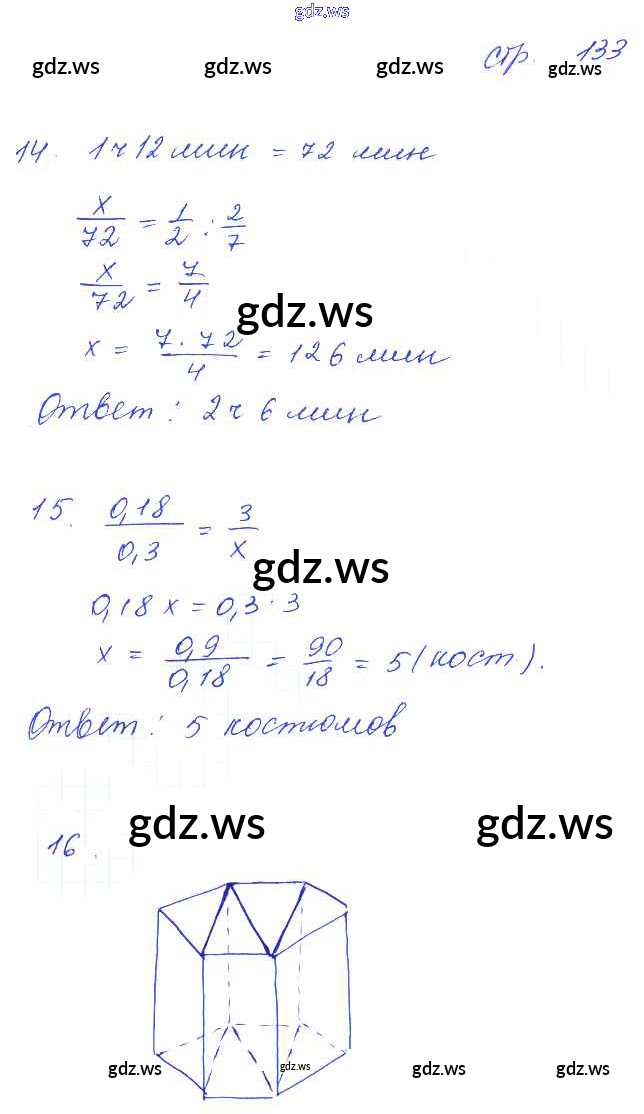 gdz.ws
стр. 133
gdz.ws gdz.ws gdz.ws gdz.ws
14. 1ч 12 мин = 72 мин
x/72 = 1/2 : 2/7
x/72 = 7/4
gdz.ws
x = 7·72/4 = 126 мин
Ответ: 2ч 6 мин
15. 0,18/0,3 = 3/x
gdz.ws
0,18x = 0,3·3
x = 0,9/0,18 = 90/18 = 5 (кост.).
Ответ: 5 костюмов
gdz.ws gdz.ws
16.
gdz.ws gdz.ws gdz.ws gdz.ws